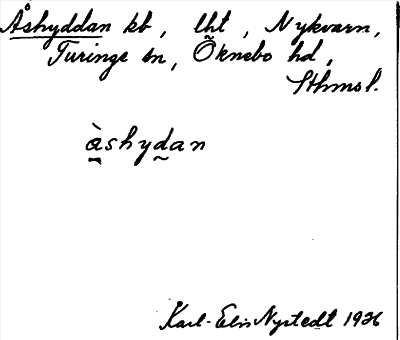 Åshyddan kb, lht, Nykvarn,
Turinge sn, Öknebo hd,
Sthmsl.
àshydan
Karl-Elis Nystedt 1926